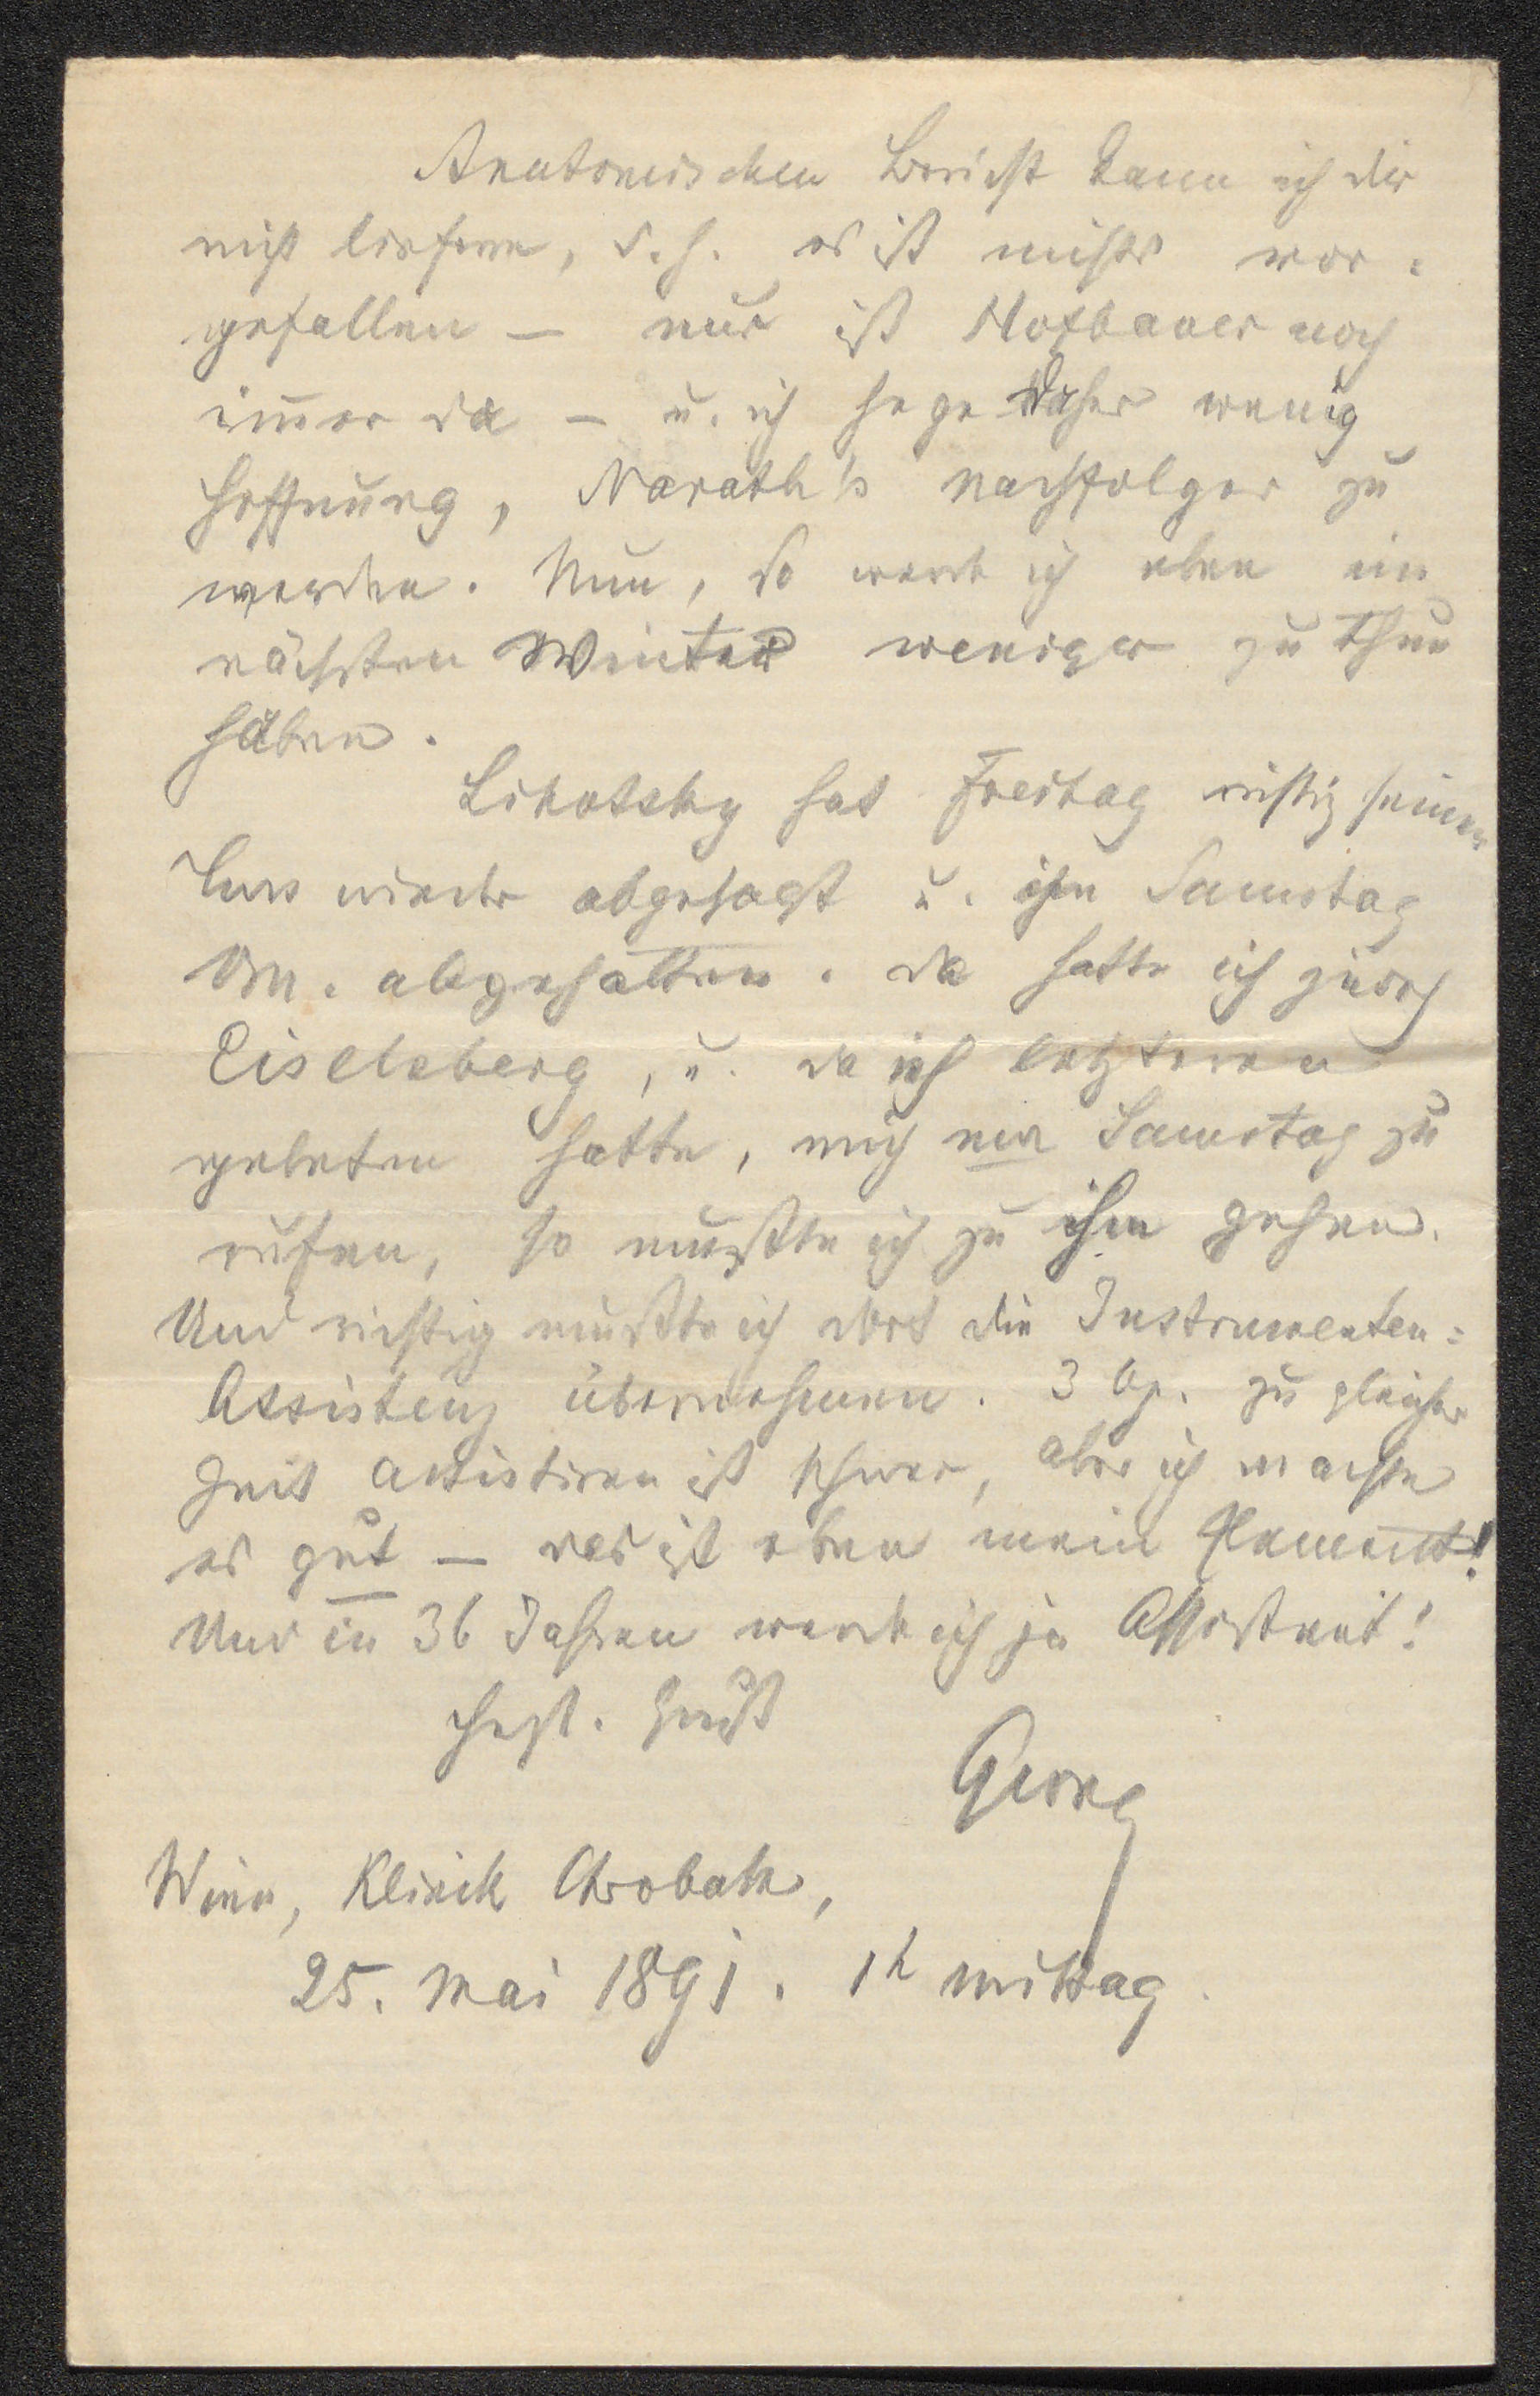 Anatomischen Bericht kann ich dir
nicht liefern, d. h. es ist nichts vor=
gefallen — nur ist Hofbauer noch
im̅er da — u. ich hege daher wenig
Hoffnung, Narath's Nachfolger zu
werden. Nun, so werde ich eben im
nächsten Winter weniger zu thun
haben.
Lihotzky hat Freitag richtig seinen
Curs wieder abgesagt u. ihn Samstag
Vm. abgehalten. Da hatte ich zugl
Eiselsberg, u. da ich letzteren
gebeten hatte, mich nur Samstag zu
rufen, so mußte ich zu ihm gehen.
Und richtig mußte ich dort die Instrumenten=
Assistenz übernehmen. 3 Op. zu gleicher
Zeit assistiren ist schwer, aber ich mache
es gut — das ist eben mein Element!
Und in 36 Jahren werde ich ja Assistent!
Hzl. Gruß
Georg
Wien, Klinik Chrobak,
25. Mai 1891. 1h mittag.